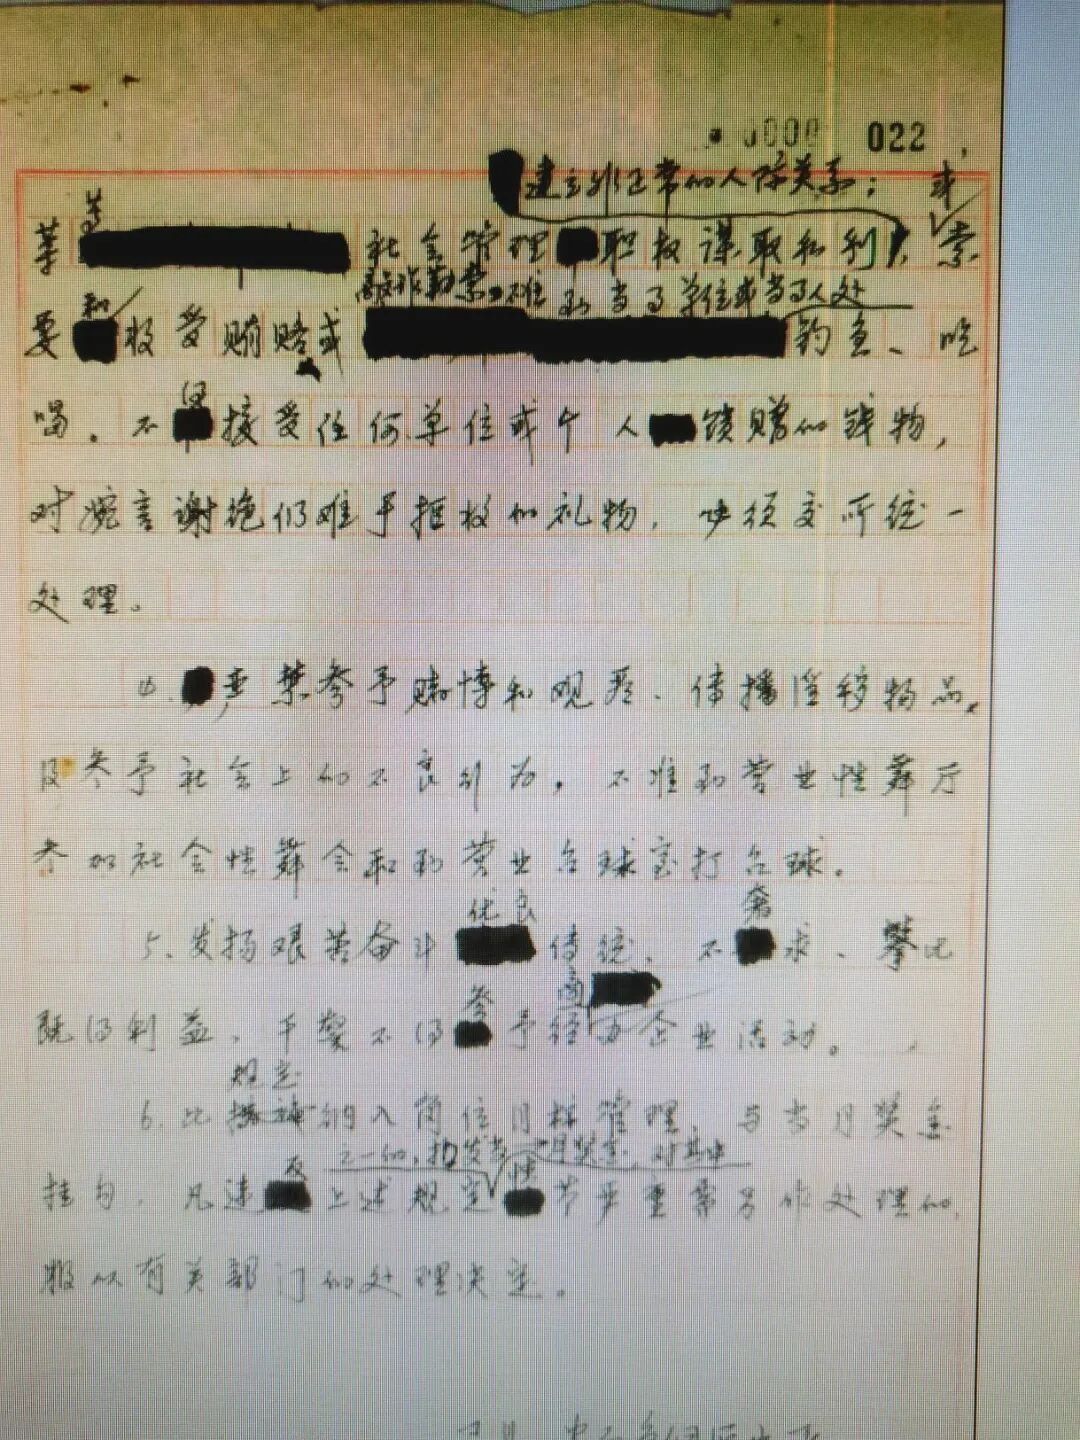 022
建立非正常的人际关系；或
等
社会管理职权谋取私利，索
严禁 不准到当事单位或当事人处
要和收受贿赂或钓鱼、吃
喝。不得接受任何单位或个人馈赠的钱物，
对婉言谢绝仍难于拒收的礼物，必须交所统一
处理。
4.严禁参予赌博和观看、传播淫秽物品，
及参予社会上的不良行为，不准到营业性舞厅
参加社会性舞会和到营业台球室打台球。
优良 奢
5、发扬艰苦奋斗传统，不求、攀比
参
既得利益，干警不得予经办企业活动。
规定
6.此纳入岗位目标管理，与当月奖金
反 之一的，扣发当月奖金，对其中 情
挂勾，凡违上述规定节严重需另作处理的，
报以有关部门的处理决定。